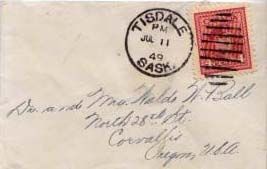 TISDALE
PM
JUL 11
49
SASK.
4 4
Dr. and Mrs. Waldo W. Ball
North 28th St.
Corvallis
Oregon, USA